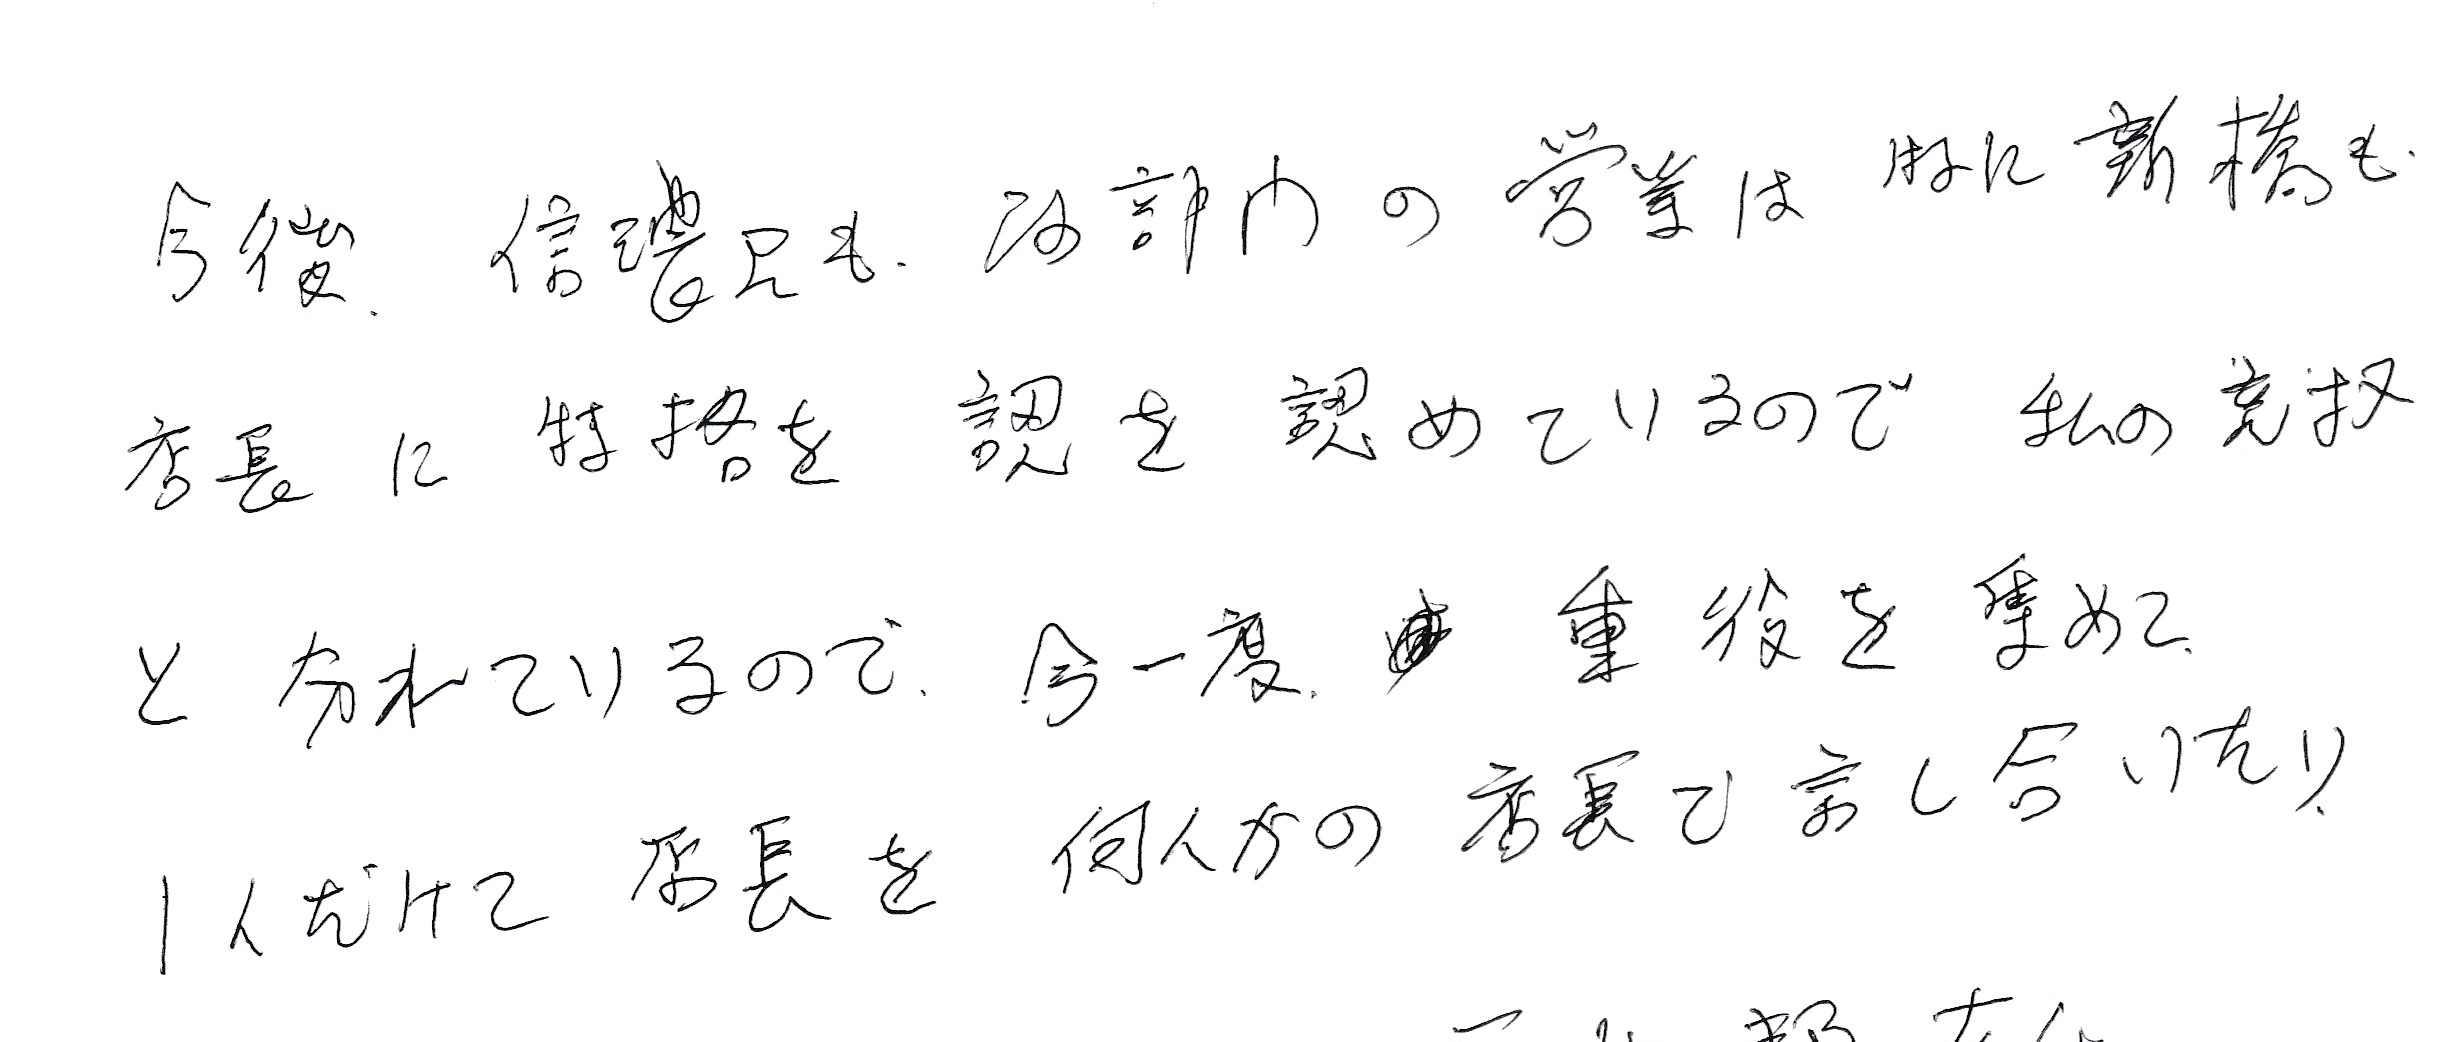 今後、信濃兄も、部内の営業は 特に 新橋も、
店長に 特格を 認を 認めているので 私の
と 分れているので、今一度、重役を 集めて、
1人だけで 店長を 何人かの 店長で 話し合いたい、